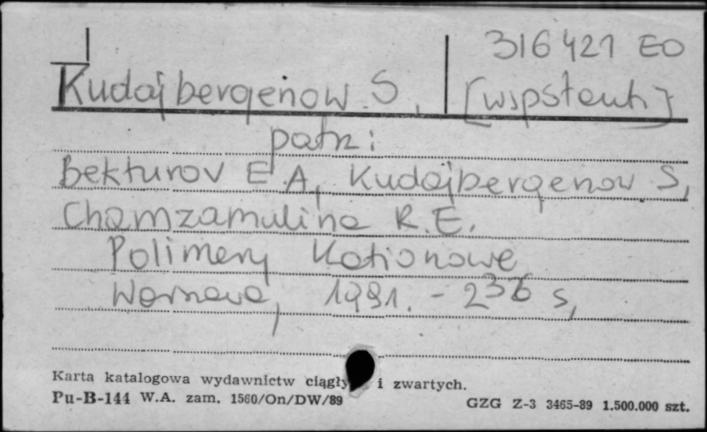 316421 EO
Kudajbergenow S, [współaut]
patrz:
Bekturov E.A, Kudajbergenov S,
Chamzamulina R.E.
Polimery Kationowe
Warszawa, 1991. - 236 s,
Karta katalogowa wydawnictw ciągły i zwartych.
Pu-B-144 W.A. zam. 1560/On/DW/89
GZG Z-3 3465-89 1.500.000 szt.